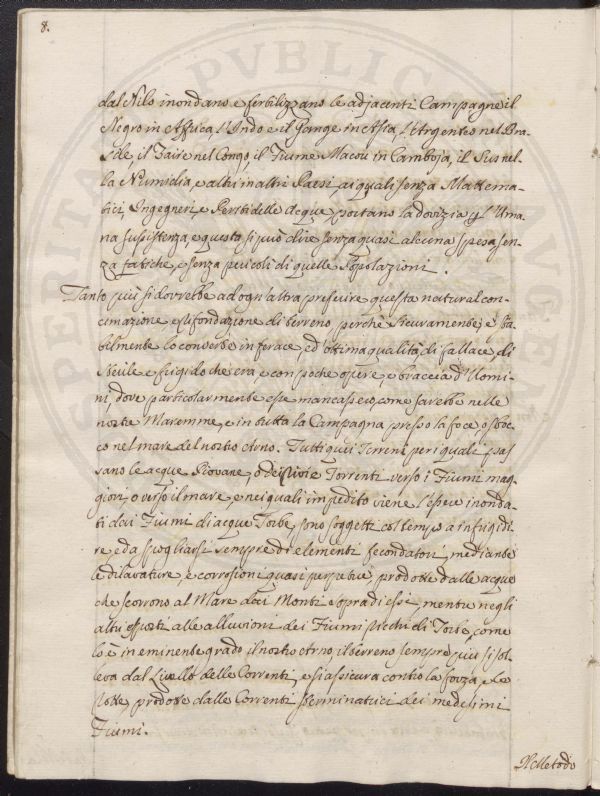 8.
dal Nilo inondano e fertilizzano le adjacenti Campagne il
Negro in Affrica L'Indo e il Gange in Asia, L'Argenteo nel Bra-
sile, il Zaire nel Congo, il Fiume Macou in Camboja, il Sus nel-
la Numidia, e altri in altri Paesi, ai quali senza Mattema-
tici, Ingegneri, e Periti delle Acque, portano la dovizia p l'Uma-
na sussistenza e questa si può dire senza quasi alcuna spesa sen-
za fatiche, e senza pericoli di quelle Popolazioni.
Tanto più si dovrebbe ad ogn'altra preferire questa natural con-
cimazione e rifondazione di terreno perchè sicuramente, e sta-
bilmente lo converte in ferace, ed ottima qualità, di fallace, di
sterile e frigido che era, e con poche opere, e braccia d'Uomi-
ni, dove particolarmente esse mancassero, come sarebbe nelle
nostre Maremme, e in tutta la Campagna presso la foce, o sboc-
co nel mare del nostro Arno. Tutti quei Terreni per i quali pas-
sano le acque Piovane, o dei Rivi e Torrenti verso i Fiumi mag-
giori, o verso il mare, e nei quali impedito viene l'esser inonda-
ti dai Fiumi di acque Torbe, sono soggetti col tempo a infrigidi-
re, e da spogliarsi sempre di elementi fecondatori, mediante
le dilavature, e corrosioni quasi perpetue, prodotte dalle acque
che scorrono al Mare dai Monti sopra di essi, mentre negli
altri esposti alle alluvioni dei Fiumi ricchi di Torbe, come
lo è in eminente grado il nostro Arno, il terreno sempre più si sol-
leva dal Livello delle Correnti, e si assicura contro la forza, e Le
rotte, prodotte dalle Correnti sterminatrici dei medesimi
Fiumi.
Il Metodo
SPERITAS PVBLICA AVG